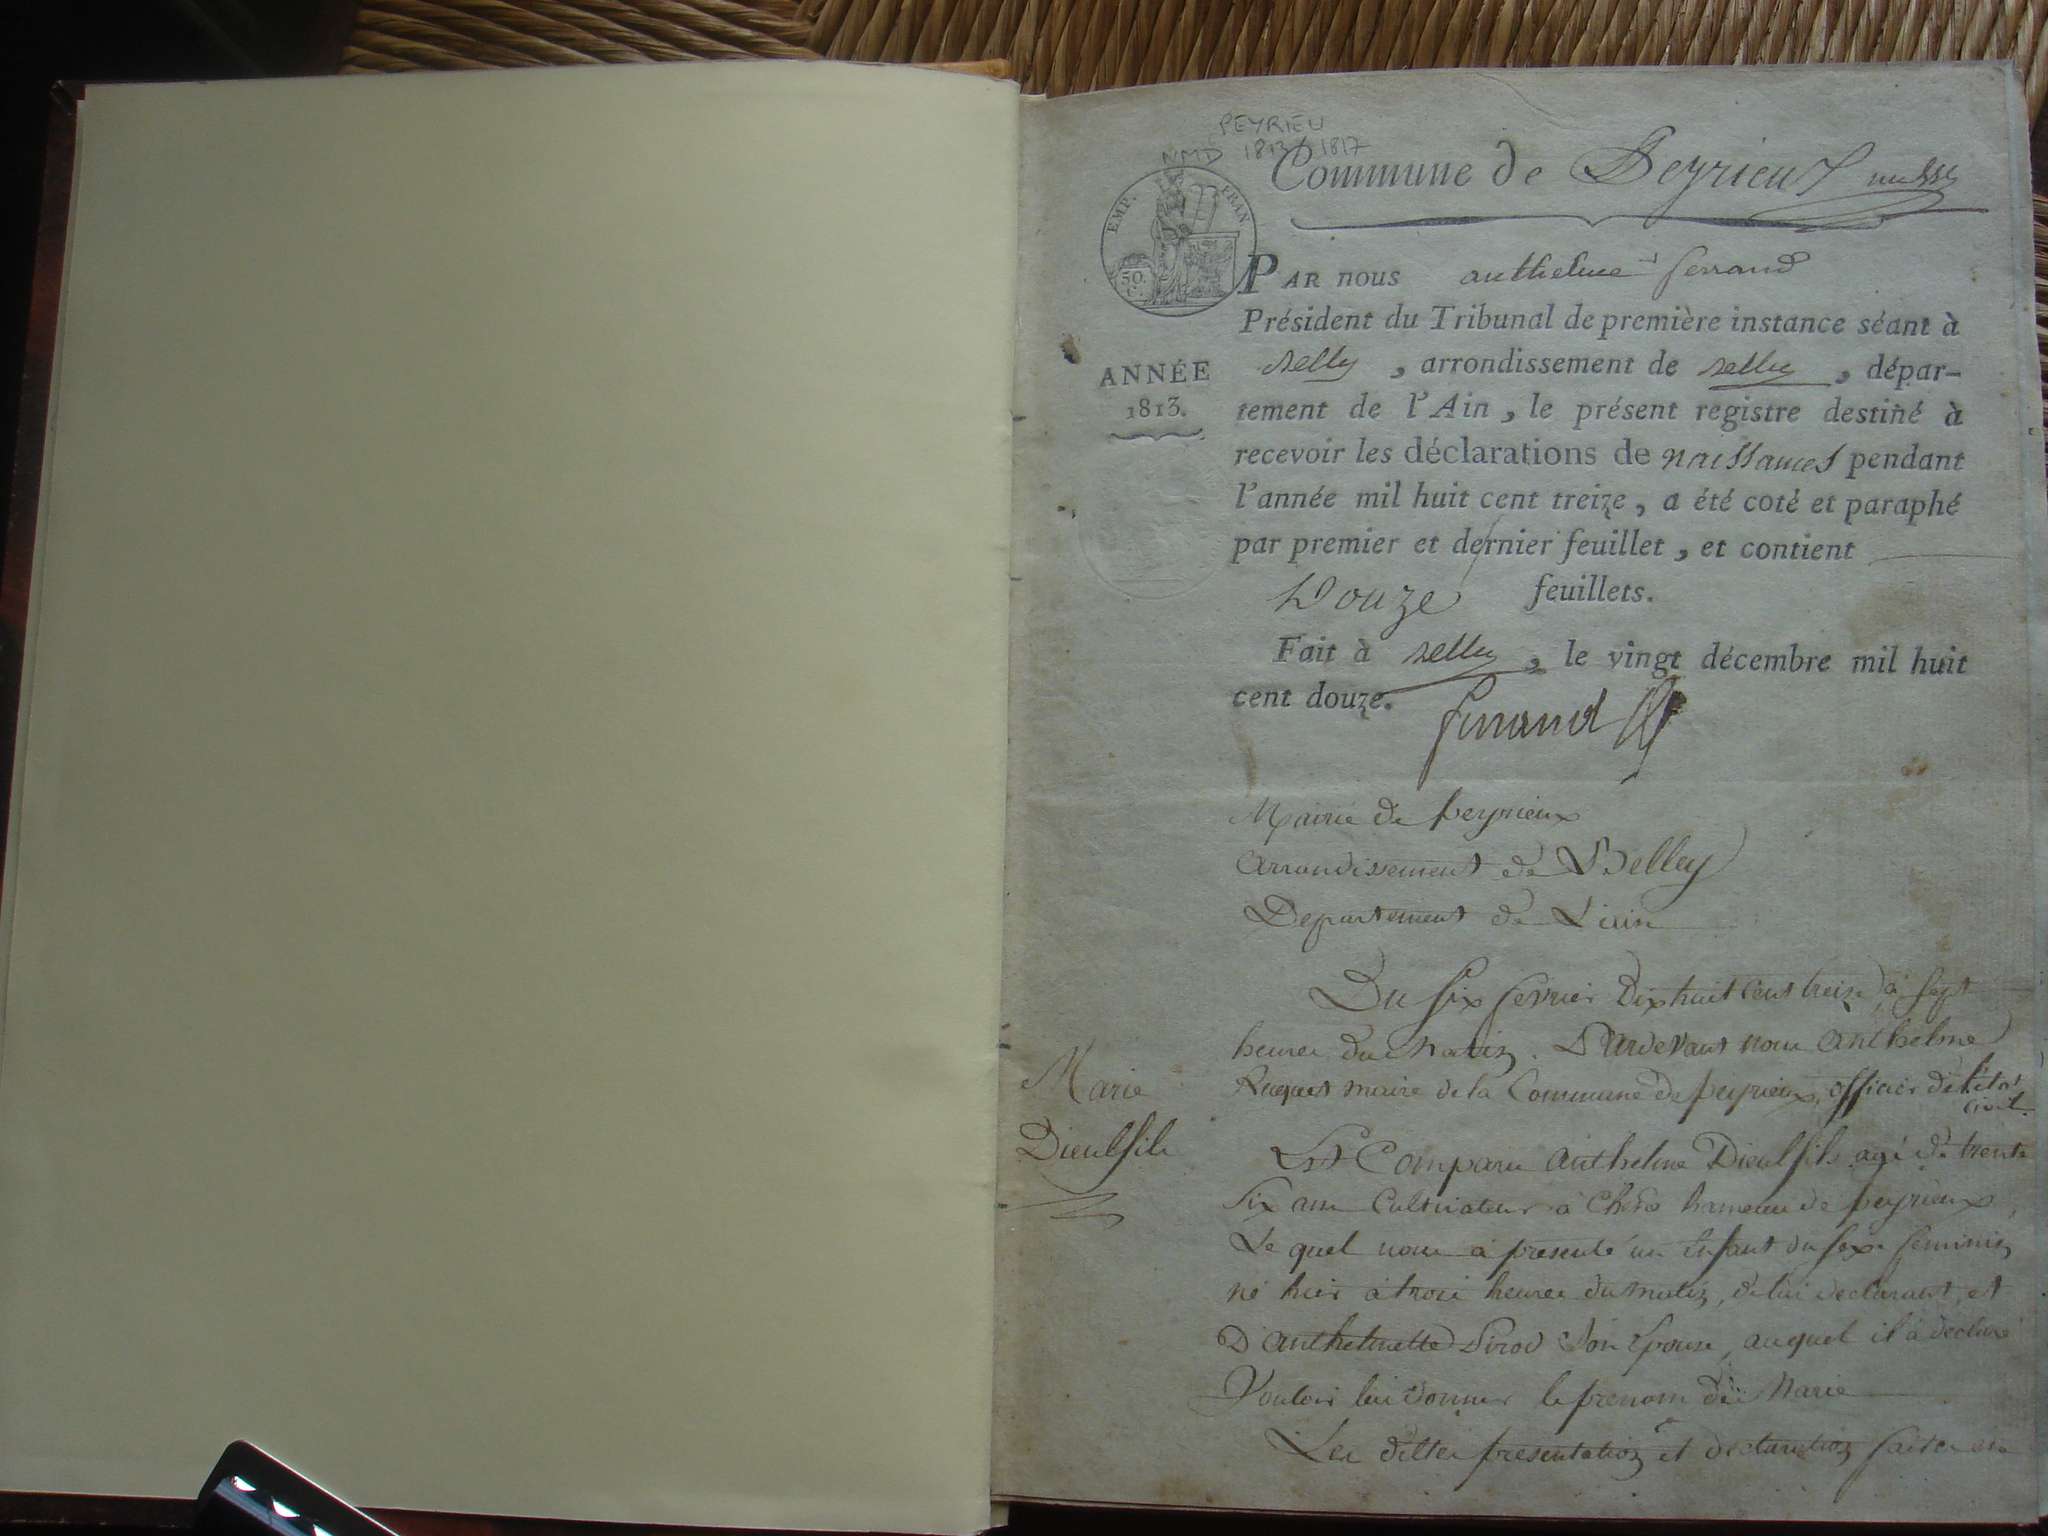 PEYRIEU
NMD 1813/1817
Commune de Peyrieux
EMP. FRAN
50.
C.
PAR nous anthelme ferrand
Président du Tribunal de première instance séant à
Belley, arrondissement de Belley, dépar-
tement de l'Ain, le présent registre destiné à
recevoir les déclarations de naissances pendant
l'année mil huit cent treize, a été coté et paraphé
par premier et dernier feuillet, et contient
Douze feuillets.
Fait à Belley, le vingt décembre mil huit
cent douze.
ferrand
ANNÉE
1813.
Mairie de peyrieux
Arrondissement de Belley
Departement de L'ain
Du six fevrier Dixhuit Cent treize, à sept
heures du Matin. Pardevant nous Anthelme
Ruquet maire de la Commune de peyrieux, officier de l'état
civil
Marie
Dieulfils
Est Comparu Anthelme Dieulfils agé de trente
six ans Cultivateur à hameau de peyrieux,
Le quel nous à presenté un Enfant du sexe feminin
né hier à trois heures du matin, de lui declarant, et
D'anthelmette Pirod son Epouse, auquel il à declaré
Vouloir lui donner le prenom de Marie
Les dittes presentation et declaration faites en